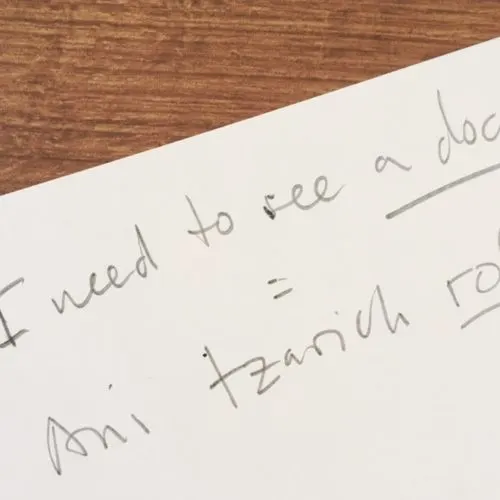 I need to see a doc
=
Ani tzarich ro